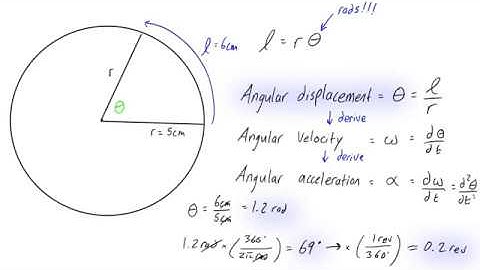 rads!!!
l = 6cm
l = r θ
r
θ
r = 5cm
Angular displacement = θ = l/r
↓ derive
Angular Velocity = ω = dθ/dt
↓ derive
Angular acceleration = α = dω/dt = d²θ/dt²
θ = 6cm/5cm = 1.2 rad
1.2 rad × (360°/2π rad) = 69° → × (1 rev/360°) = 0.2 rev